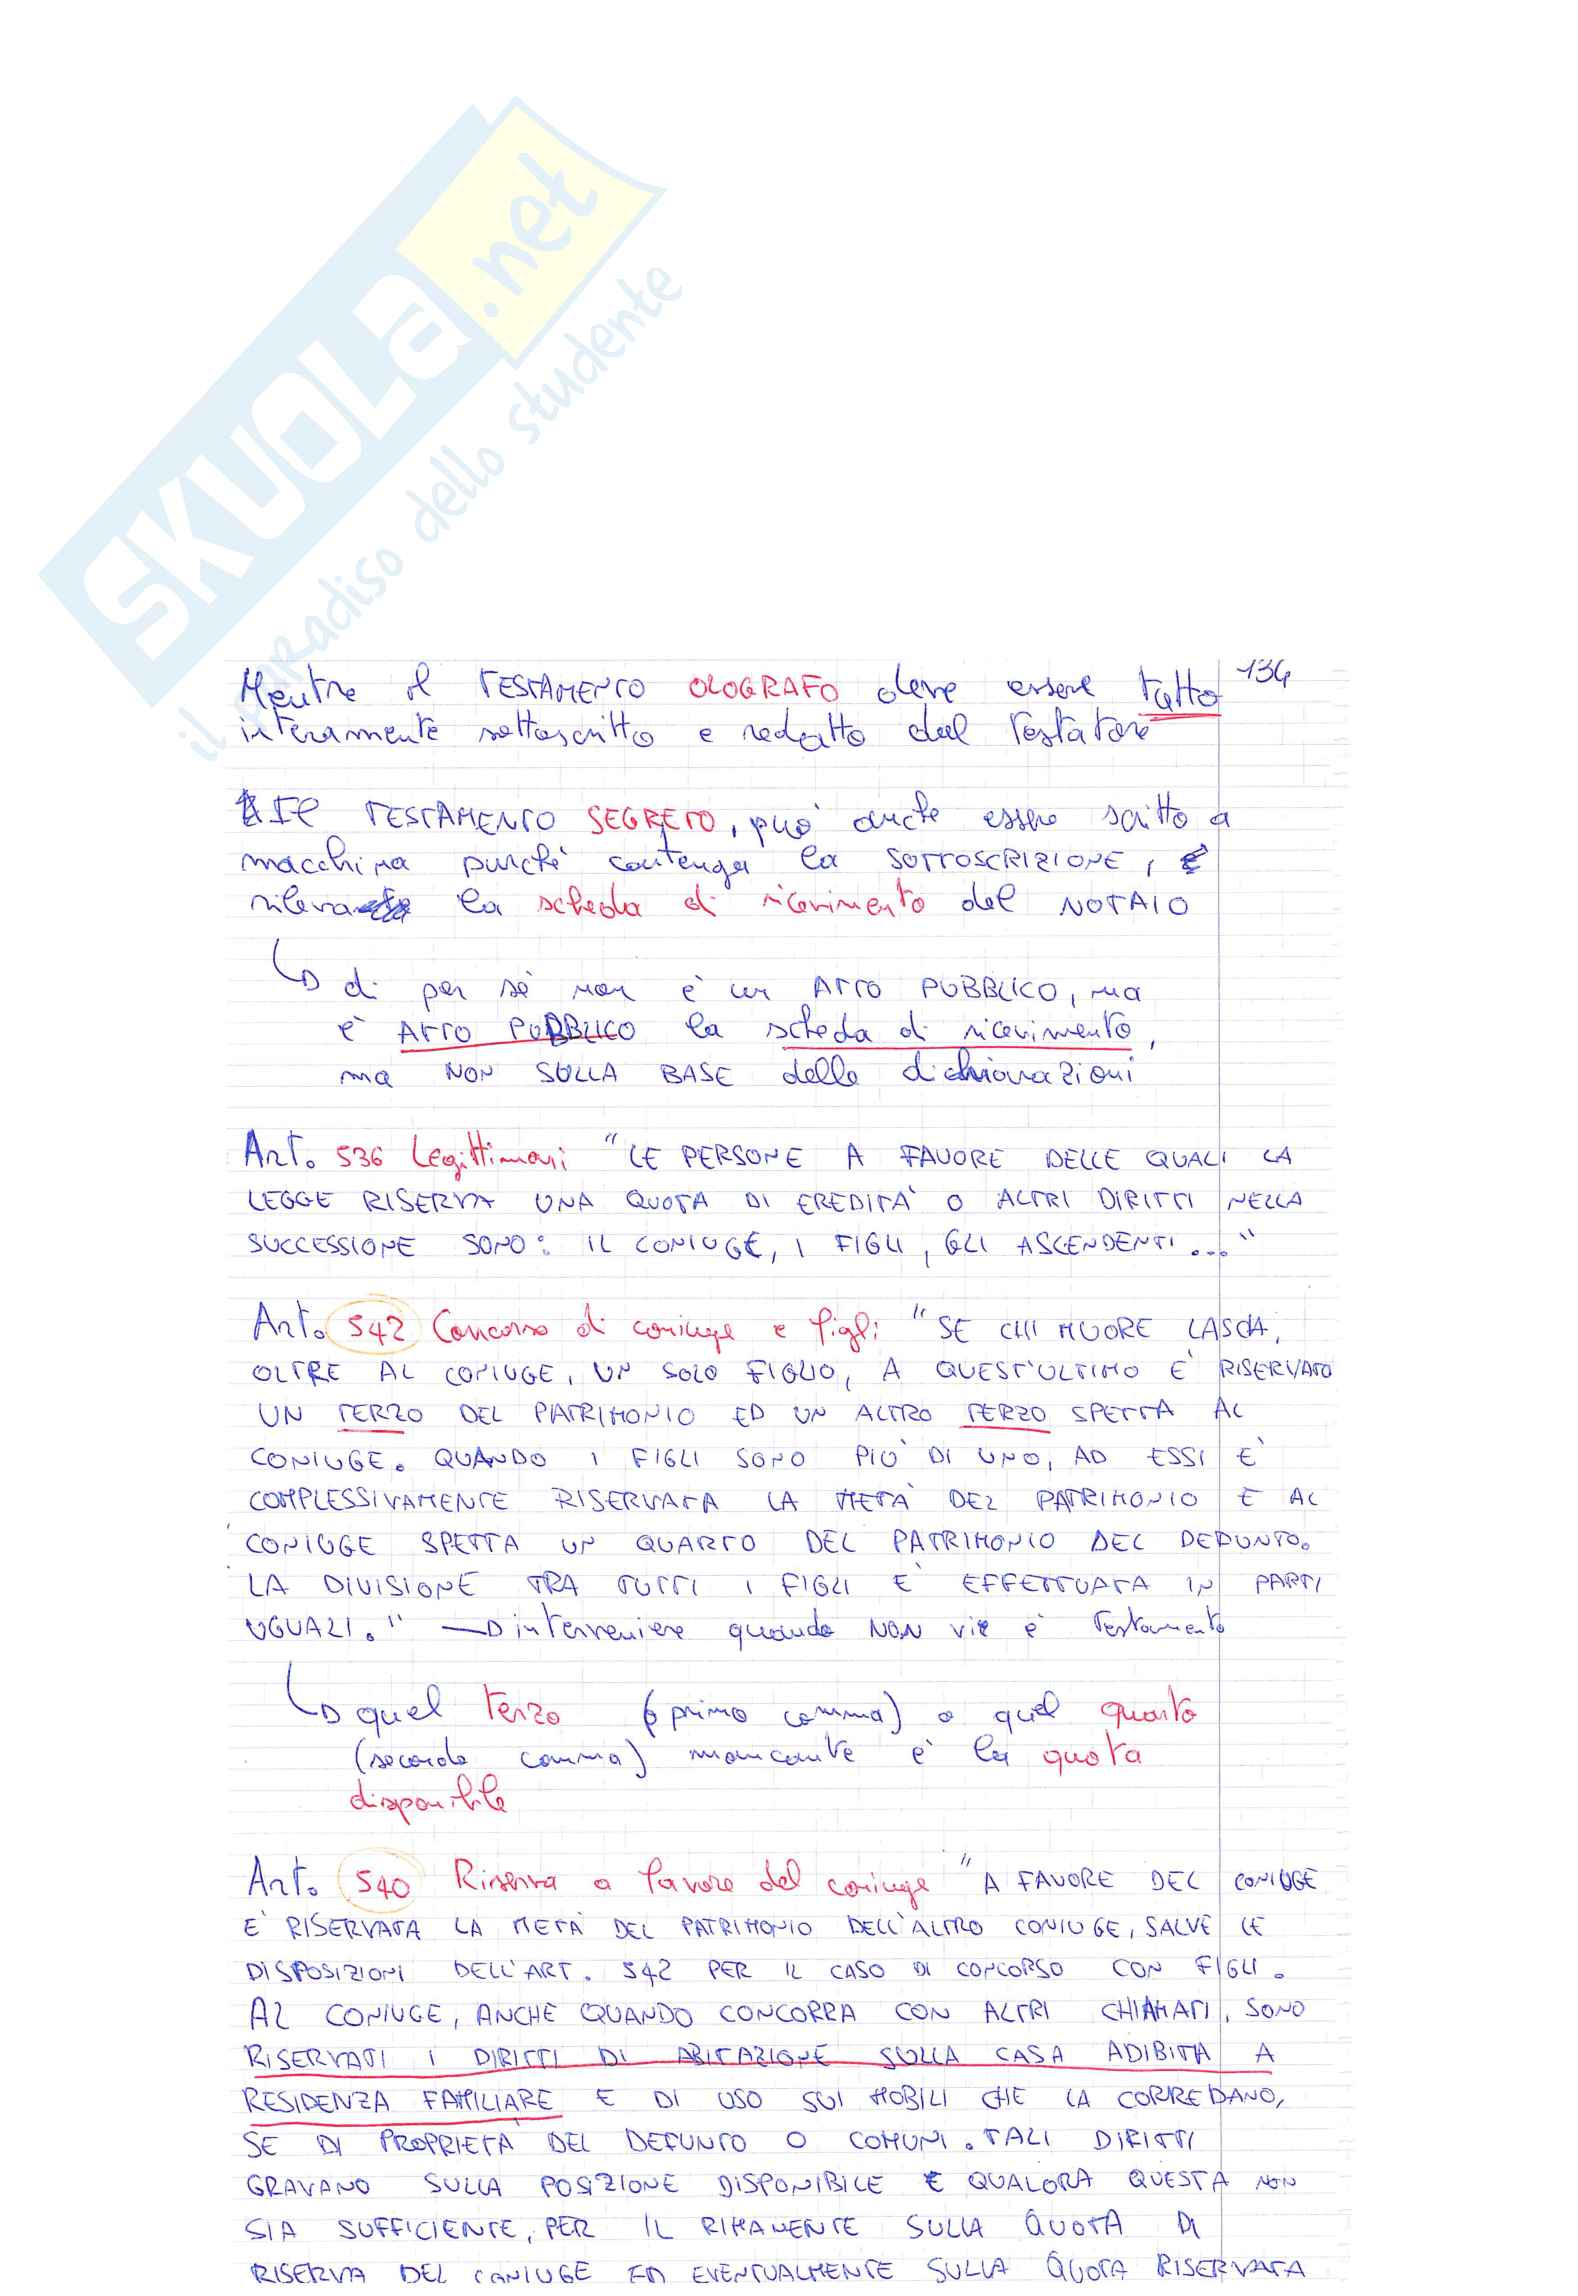 SKUOLA.net
il paradiso dello studente
134
Mentre il TESTAMENTO OLOGRAFO deve essere tutto
interamente sottoscritto e redatto dal testatore
Il TESTAMENTO SEGRETO, può anche essere scritto a
macchina purché contenga la SOTTOSCRIZIONE, è
rileva la scheda di ricevimento del NOTAIO
di per sé non è un ATTO PUBBLICO, ma
è ATTO PUBBLICO la scheda di ricevimento,
ma NON SULLA BASE delle dichiarazioni
Art. 536 Legittimari "LE PERSONE A FAVORE DELLE QUALI LA
LEGGE RISERVA UNA QUOTA DI EREDITA' O ALTRI DIRITTI NELLA
SUCCESSIONE SONO: IL CONIUGE, I FIGLI, GLI ASCENDENTI..."
Art. 542 Concorso di coniuge e figli "SE CHI MUORE LASCIA,
OLTRE AL CONIUGE, UN SOLO FIGLIO, A QUEST'ULTIMO E' RISERVATO
UN TERZO DEL PATRIMONIO ED UN ALTRO TERZO SPETTA AL
CONIUGE. QUANDO I FIGLI SONO PIU' DI UNO, AD ESSI E'
COMPLESSIVAMENTE RISERVATA LA META' DEL PATRIMONIO E AL
CONIUGE SPETTA UN QUARTO DEL PATRIMONIO DEL DEFUNTO.
LA DIVISIONE TRA TUTTI I FIGLI E' EFFETTUATA IN PARTI
UGUALI." → interviene quando NON vi è testamento
quel terzo (primo comma) o quel quarto
(secondo comma) mancante è la quota
disponibile
Art. 540 Riserva a favore del coniuge "A FAVORE DEL CONIUGE
E' RISERVATA LA META' DEL PATRIMONIO DELL'ALTRO CONIUGE, SALVE LE
DISPOSIZIONI DELL'ART. 542 PER IL CASO DI CONCORSO CON FIGLI.
AL CONIUGE, ANCHE QUANDO CONCORRA CON ALTRI CHIAMATI, SONO
RISERVATI I DIRITTI DI ABITAZIONE SULLA CASA ADIBITA A
RESIDENZA FAMILIARE E DI USO SUI MOBILI CHE LA CORREDANO,
SE DI PROPRIETA' DEL DEFUNTO O COMUNI. TALI DIRITTI
GRAVANO SULLA POSIZIONE DISPONIBILE E QUALORA QUESTA NON
SIA SUFFICIENTE, PER IL RIMANENTE SULLA QUOTA DI
RISERVA DEL CONIUGE ED EVENTUALMENTE SULLA QUOTA RISERVATA